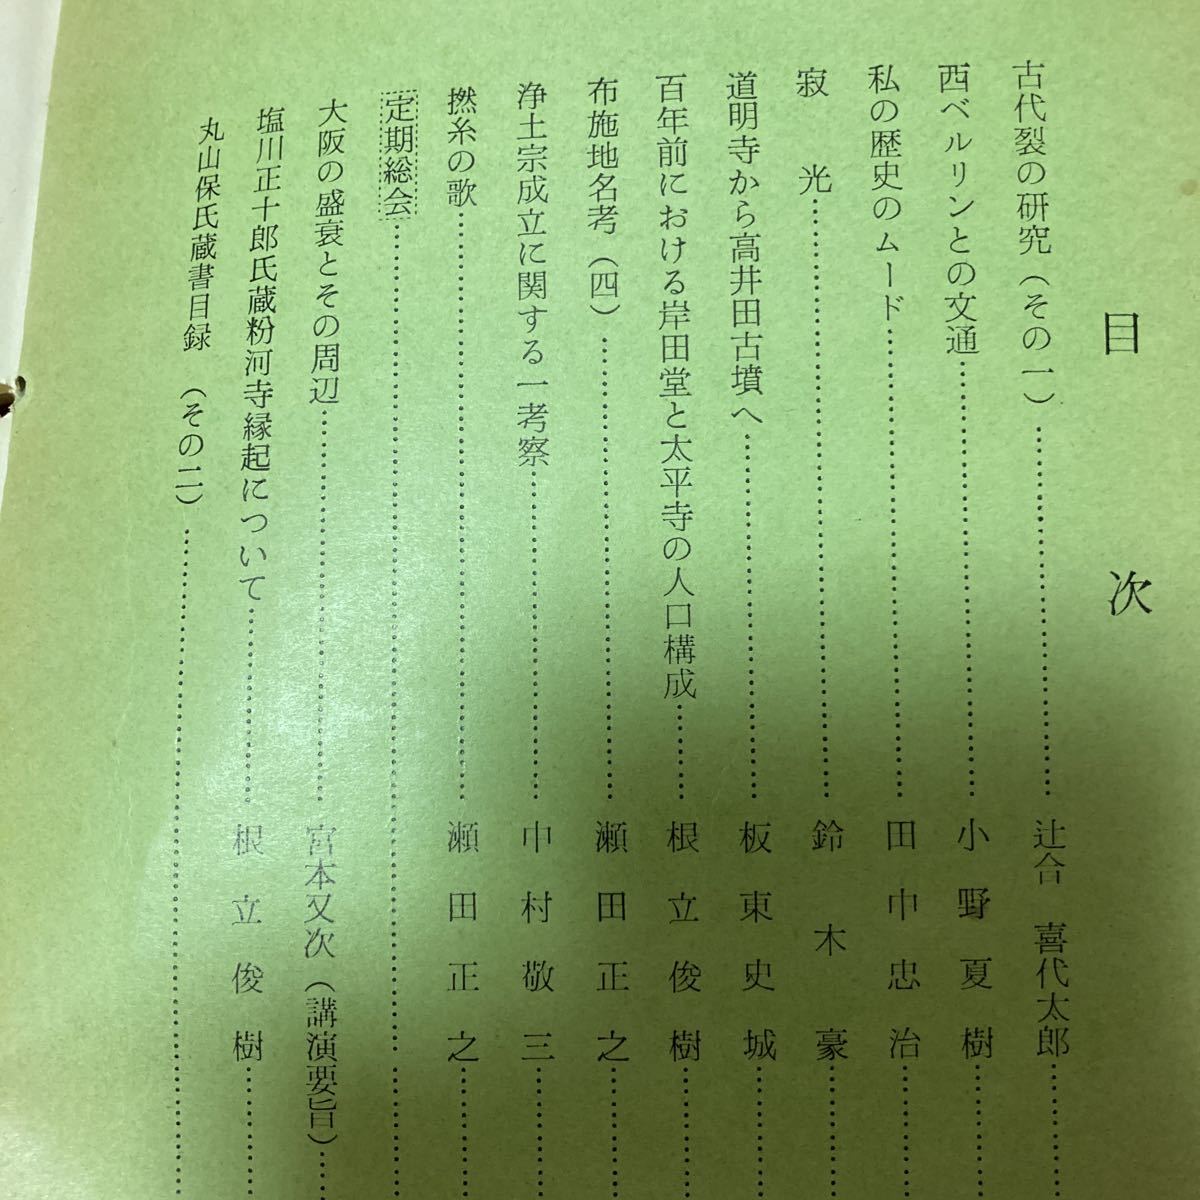 目次
古代裂の研究（その一）……辻合 喜代太郎……
西ベルリンとの文通……小野夏樹……
私の歴史のムード……田中忠治……
寂光……鈴木豪……
道明寺から高井田古墳へ……板東史城……
百年前における岸田堂と太平寺の人口構成……根立俊樹……
布施地名考（四）……瀬田正之……
浄土宗成立に関する一考察……中村敬三……
撚糸の歌……瀬田正之……
定期総会……
大阪の盛衰とその周辺……宮本又次（講演要旨）……
塩川正十郎氏蔵粉河寺縁起について……根立俊樹……
丸山保氏蔵書目録（その二）……